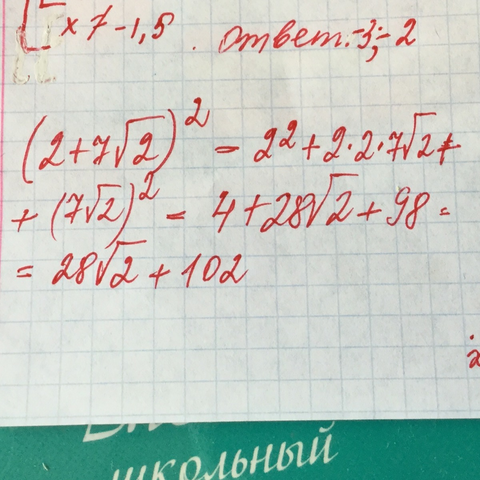 [ x > -1,5 . Ответ: -3; -2
(2+7√2)² = 2² + 2·2·7√2 +
+ (7√2)² = 4 + 28√2 + 98 =
= 28√2 + 102
школьный